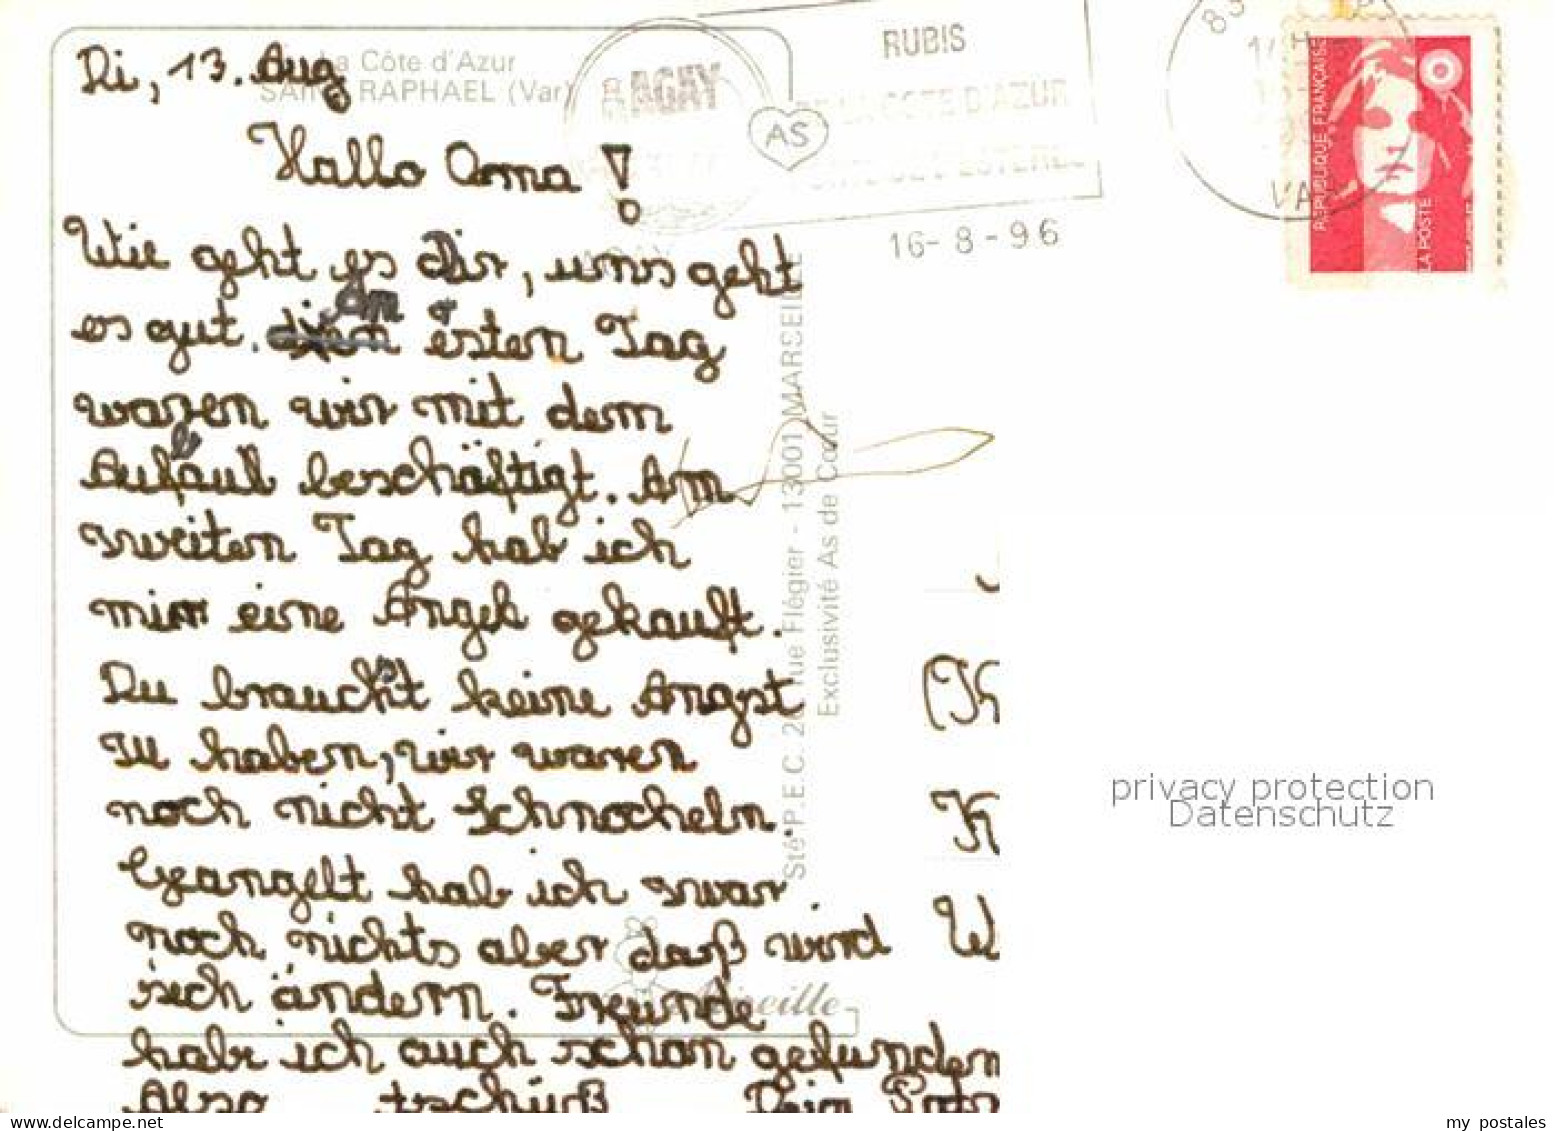 La Côte d'Azur
RAPHAEL (Var)
Di, 13. Aug
Hallo Oma!
Wie geht es Dir, uns geht
es gut. Am ersten Tag
waren wir mit dem
Aufbaun beschäftigt. Am
zweiten Tag hab ich
mir eine Angel gekauft.
Du brauchst keine Angst
zu haben, wir waren
noch nicht Schnocheln.
Geangelt hab ich zwar
noch nichts aber daß wird
sich ändern. Freunde
habe ich auch schon gefunden
Also tschüß Dein
Sté P.E.C. 20 rue Flégier - 13001 MARSEILLE
Exclusivité As de Cœur
Mireille
AS
AGAY
RUBIS
DE LA COTE D'AZUR
16-8-96
83
VAR
REPUBLIQUE FRANÇAISE
LA POSTE
privacy protection
Datenschutz
my postales